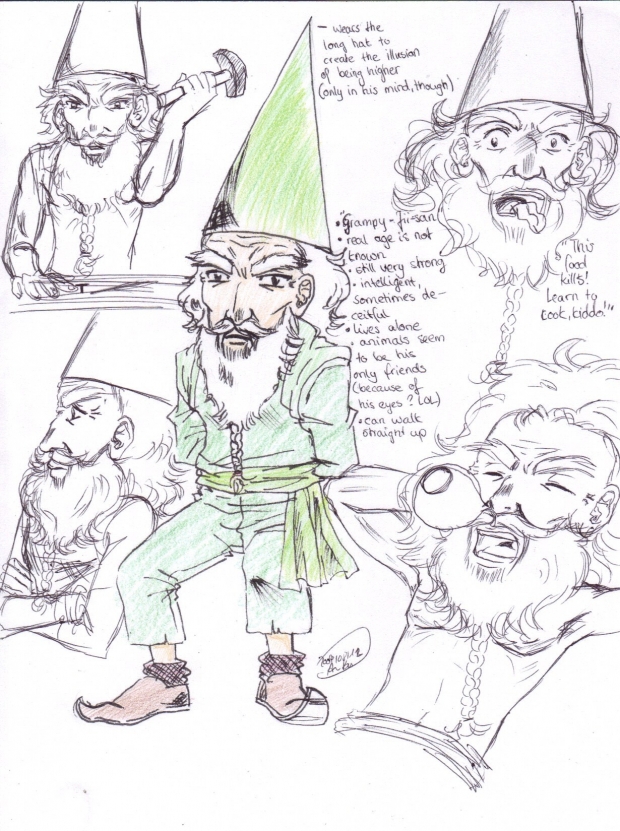 - wears the
long hat to
create the illusion
of being higher
(only in his mind, though)
• "Grampy-fir-san
• real age is not
known
• still very strong
• intelligent,
sometimes de-
ceitful
• lives alone
• animals seem
to be his
only friends
(because of
his eyes? lol)
• can walk
straight up
"This
food
kills!
Learn to
cook, kiddo!"